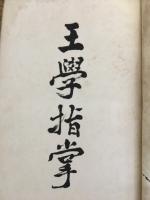 王學指掌